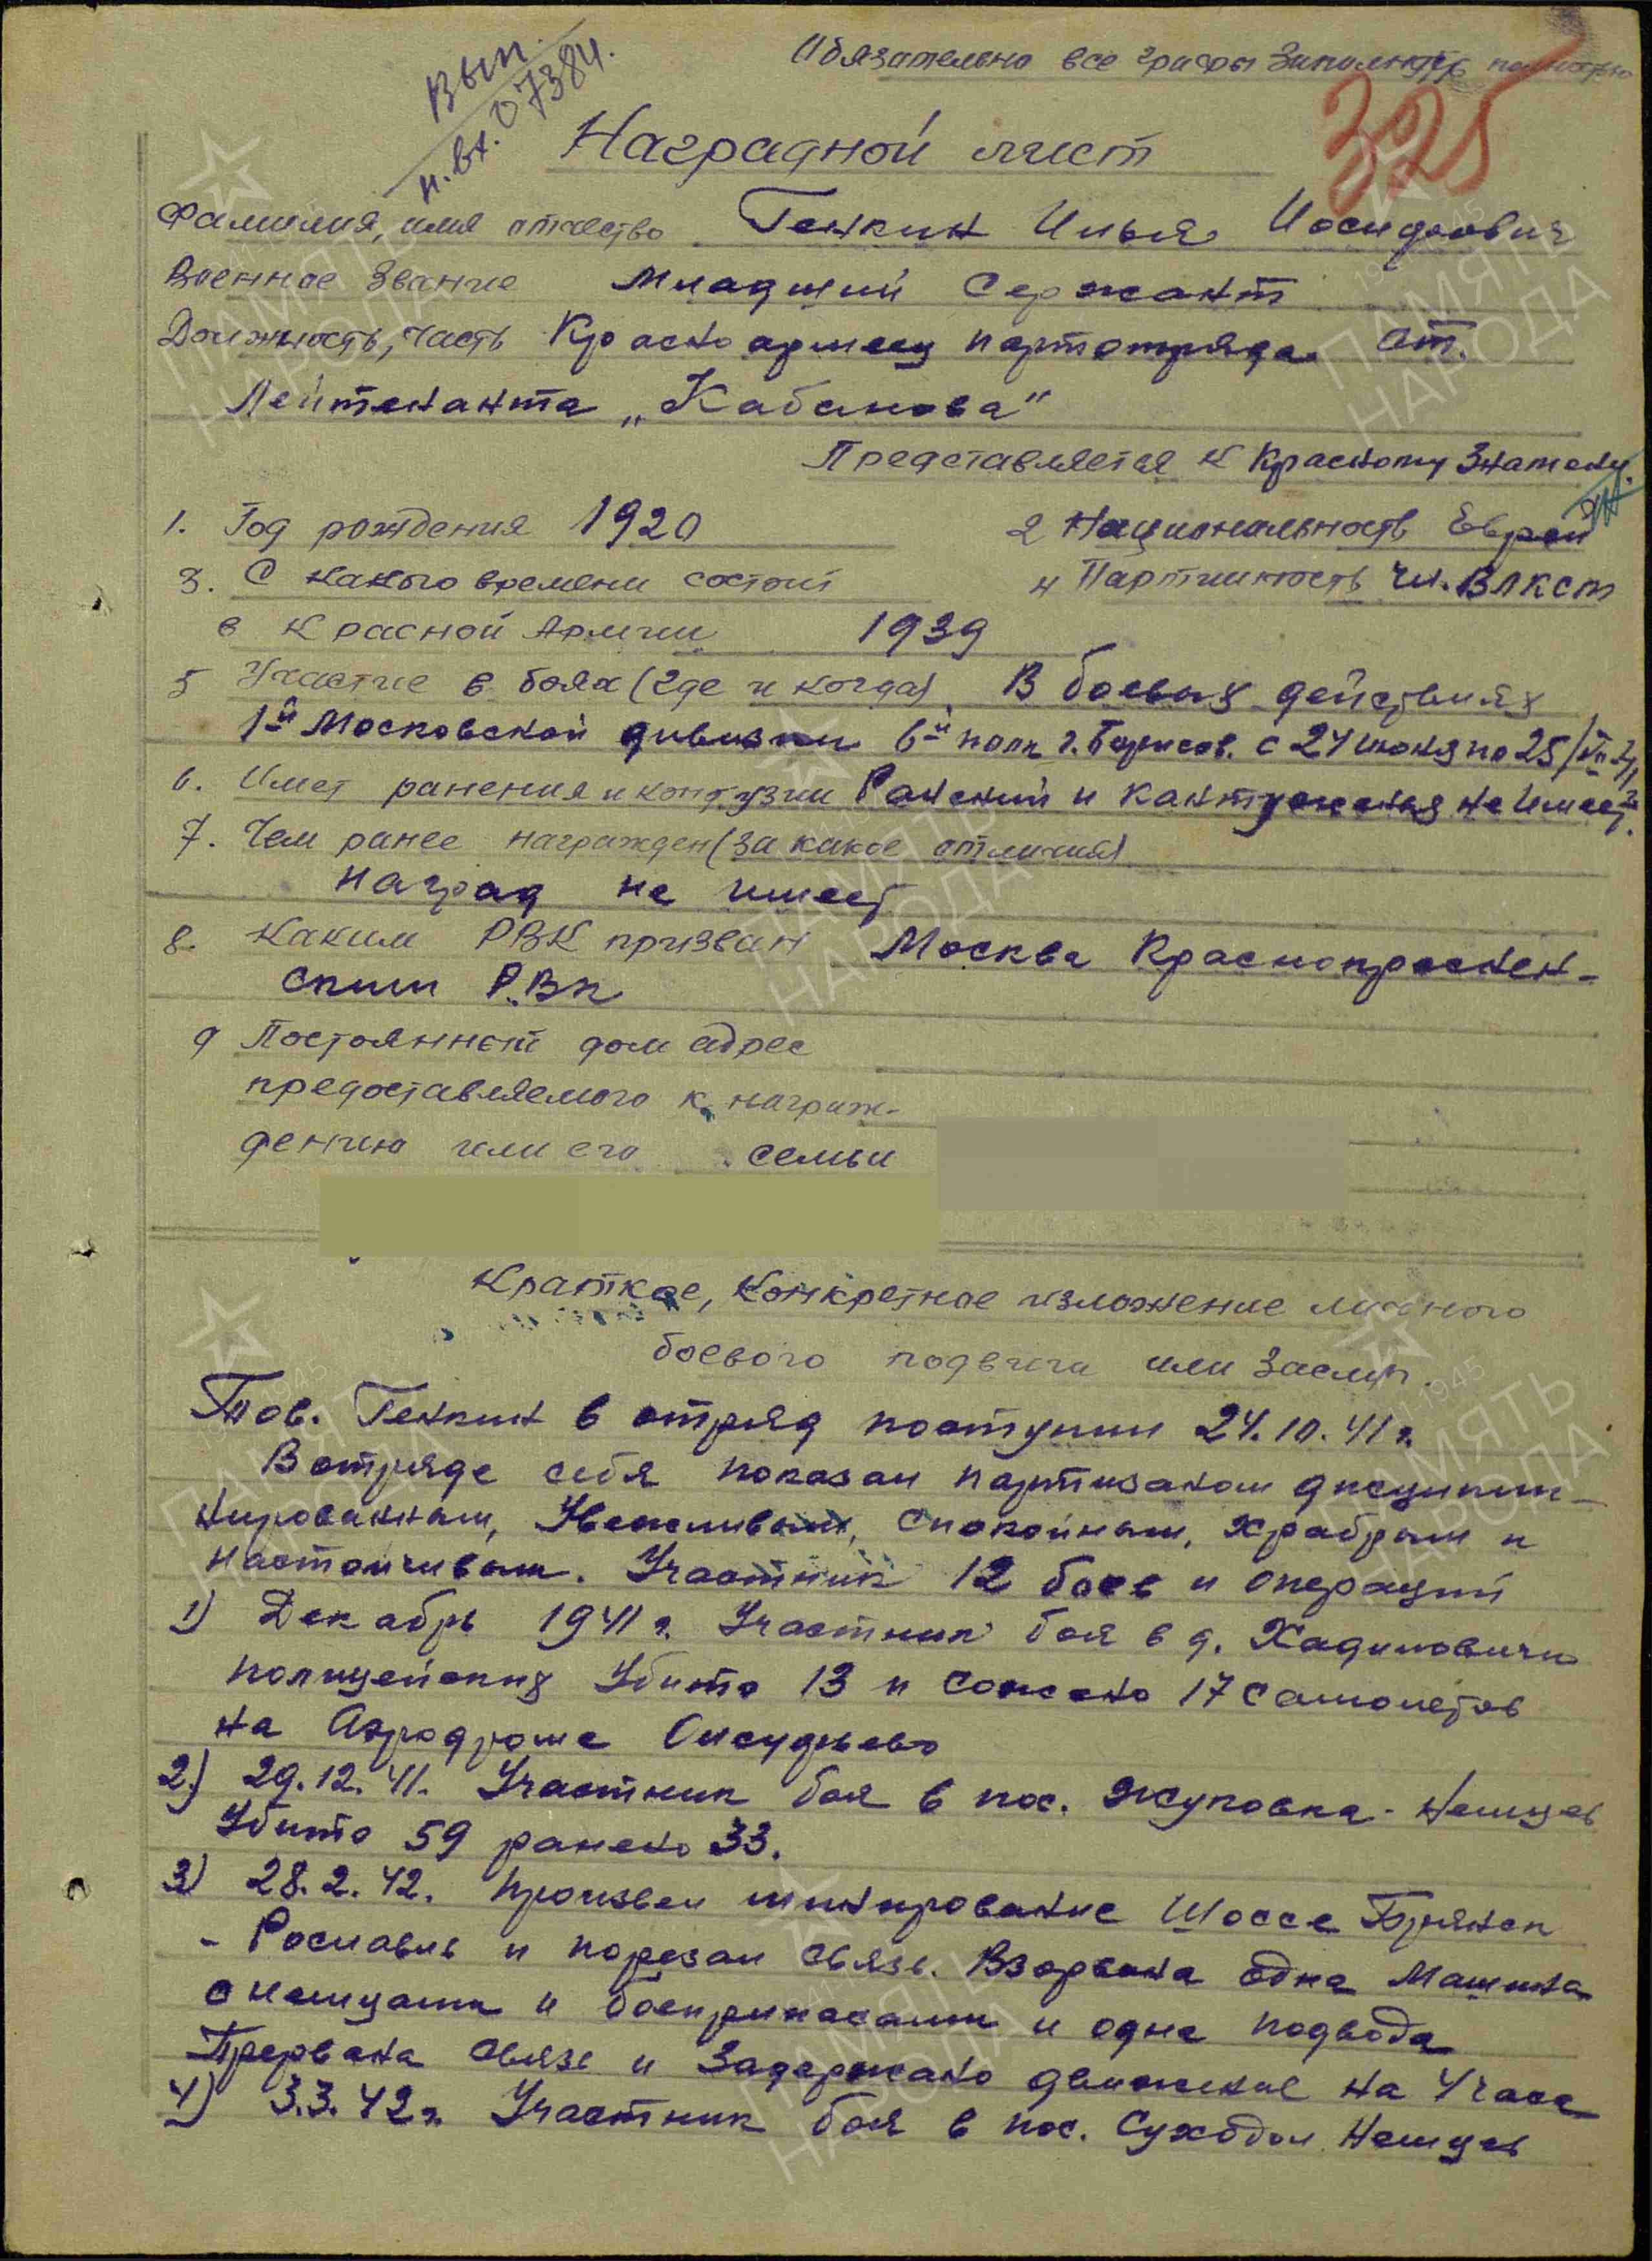 Обязательно все графы заполнять
Вып.
н.вх. 07384.
325
Наградной лист
Фамилия, имя отчество Генкин Илья Иосифович
Военное звание Младший Сержант
Должность, часть Красноармеец партотряда Ст.
Лейтенанта „Кабанова"
Представляется к Красному Знамени.
1. Год рождения 1920
2 Национальность Еврей
3. С какого времени состоит
4 Партийность чл. ВЛКСМ
в Красной Армии 1939
5 Участие в боях (где и когда) В боевых действиях
1й Московской дивизии 6й полк г. Борисов. с 24 июня по 25/VII 41
6. Имеет ранения и контузии Ранений и кантужения не имеет.
7. Чем ранее награжден (за какое отличия)
наград не имеет
8. Каким РВК призван Москва Краснопреснен-
ским РВК
9 Постоянный дом адрес
предоставляемого к награж-
дению или его семьи
Краткое, конкретное изложение личного
боевого подвига или заслуг.
Тов. Генкин в отряд поступил 24.10.41 г.
В отряде себя показал партизаном дисципли-
нированным, Увежливым, спокойным, храбрым и
настойчивым. Участник 12 боев и операций
1) Декабрь 1941 г. Участник боя в д. Хадиловичи
полицейских Убито 13 и сожжено 17 самолетов
на Аэродроме Олсуфьево
2) 29.12.41. Участник боя в пос. Жуковка - немцев
Убито 59 ранено 33.
3) 28.2.42. произвел минирование Шоссе Брянск
- Рославль и порезал связь. Взорвана одна Машина
с немцами и боеприпасами и одна подвода
Прервана связь и задержано движение на 4 часа
4) 3.3.42 г. Участник боя в пос. Суходол Немцев
ПАМЯТЬ
НАРОДА
1941-1945